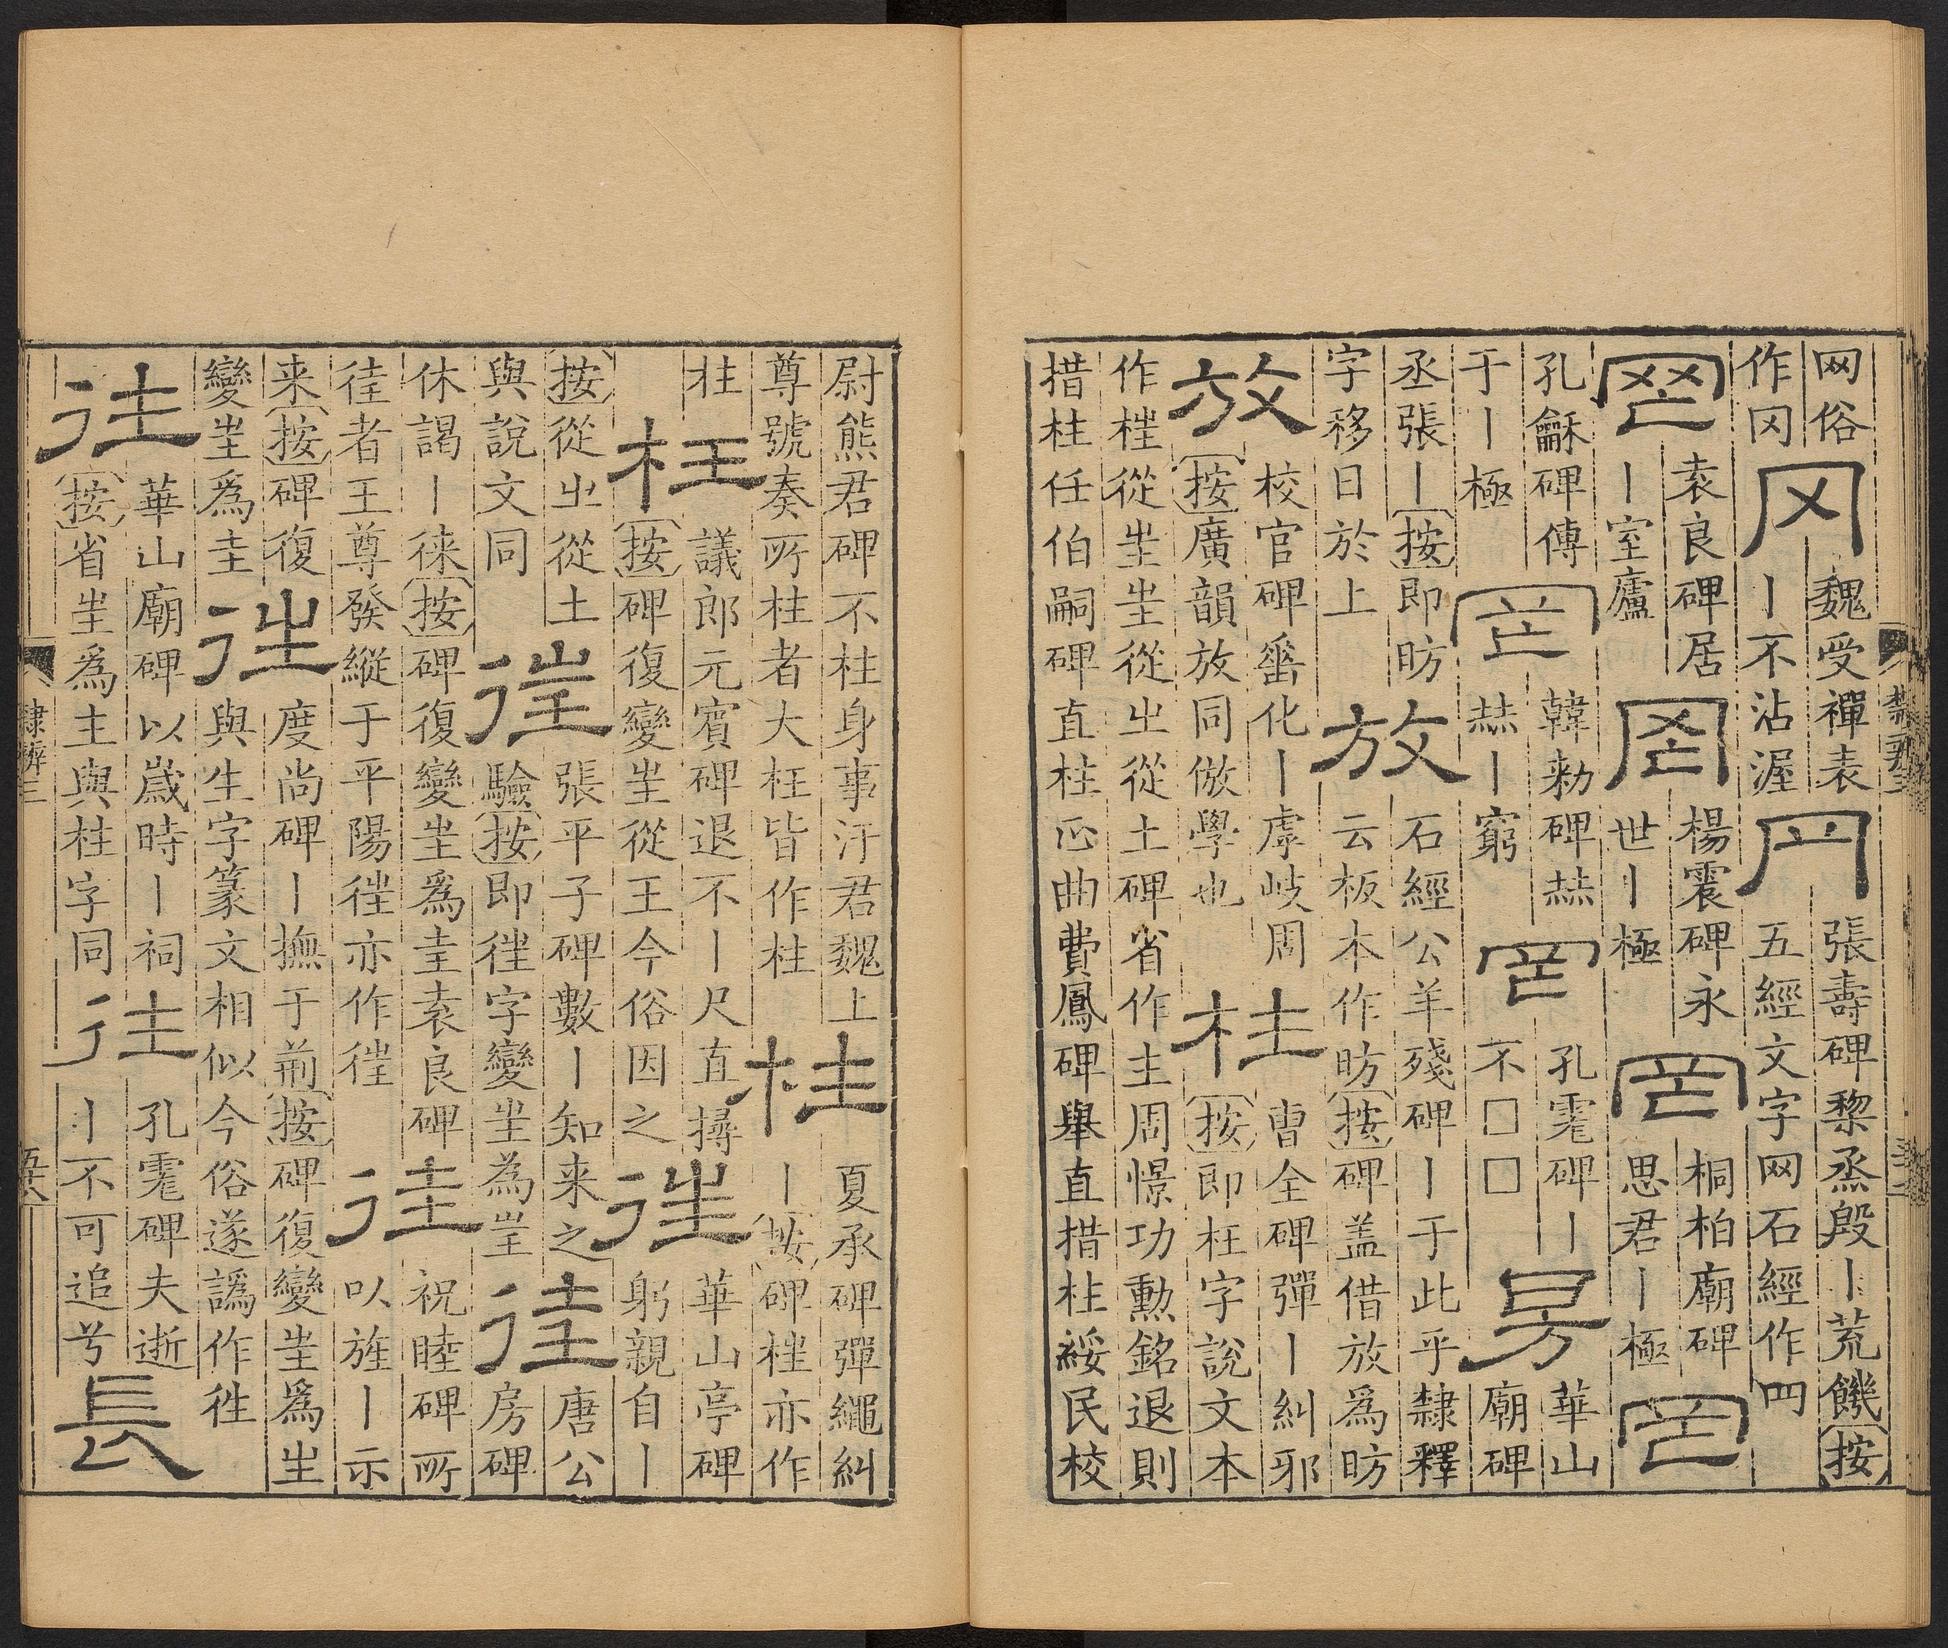 网俗
作冈
冈
魏受禪表
丨不沾渥
𦉪
張壽碑黎烝殷丨荒饑按
五經文字网石經作罒
罔
袁良碑居
丨室廬
罔
楊震碑永
世丨極
罔
桐柏廟碑
思君丨極
罔
孔龢碑傅
于丨極
罔
韓勑碑赫
赫丨窮
罔
孔宙碑丨
不□□
昉
華山
廟碑
丞張丨按即昉
字移日於上
放
石經公羊殘碑丨于此乎隸釋
云板本作昉按碑盖借放爲昉
放
校官碑畨化丨虖岐周
按廣韻放同倣學也
枉
曹全碑彈丨糾邪
按即枉字說文本
作𣒫從㞷㞷從㞢從土碑省作主周憬功勲銘退則
措柱任伯嗣碑直柱𠙺曲費鳳碑舉直措柱綏民校
尉熊君碑不柱身事汙君魏上
尊號奏所柱者大枉皆作柱
柱
夏承碑彈繩糾
丨按碑𣒫亦作
枉
枉
議郎元賓碑退不丨尺直撏
按碑復變㞷從王今俗因之
往
華山亭碑
躬親自丨
按從㞢從土
與說文同
𢓸
張平子碑數丨知来之
驗按即𢓸字變㞷為𡉚
徍
唐公
房碑
休謁丨徠按碑復變㞷爲圭袁良碑
徍者王尊發縱于平陽𢓸亦作徍
徍
祝睦碑所
以旌丨示
来按碑復
變㞷爲圭
徃
度尚碑丨撫于荊按碑復變㞷爲生
與生字篆文相似今俗遂譌作徃
往
華山廟碑以嵗時丨祠
按省㞷爲主與柱字同
往
孔宙碑夫逝
丨不可追兮
長
隸辨三